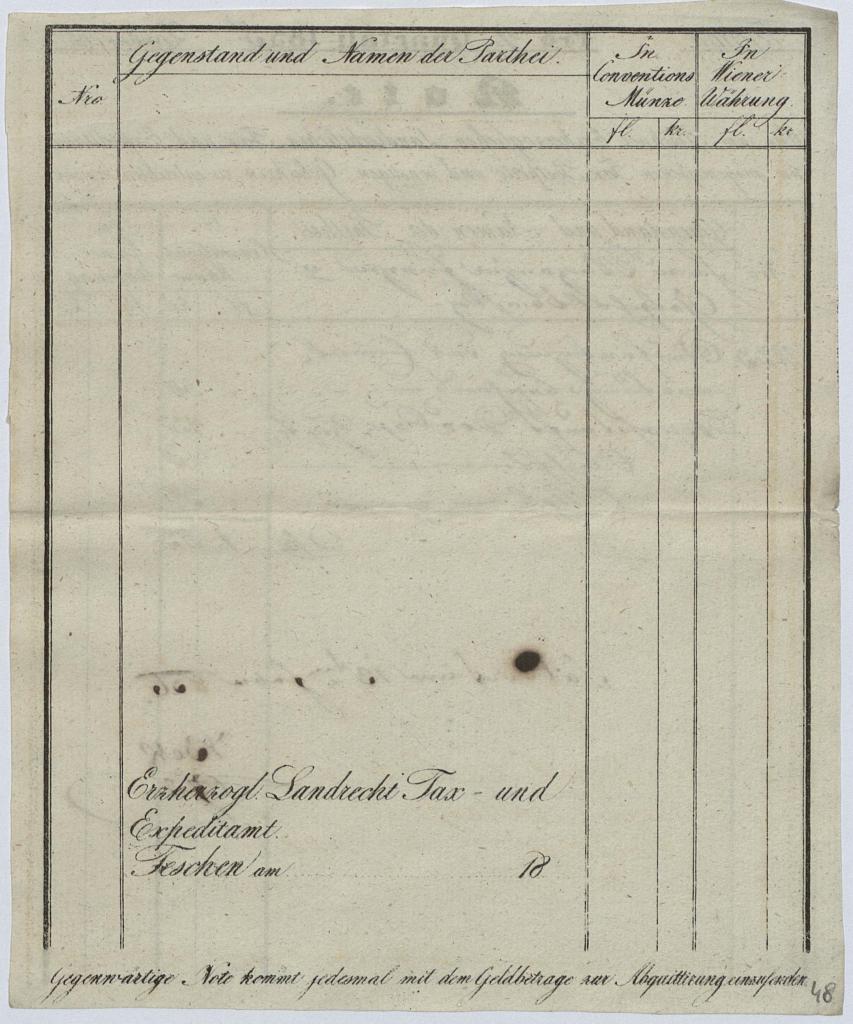 Nro
Gegenstand und Namen der Parthei.
In
Conventions
Münze
In
Wiener
Währung.
fl. kr. fl. kr.
Erzherzogl. Landrecht Tax - und
Expeditamt.
Teschen am 18
Gegenwärtige Note kommt jedesmal mit dem Geldbetrage zur Abquittirung einzusenden.
48